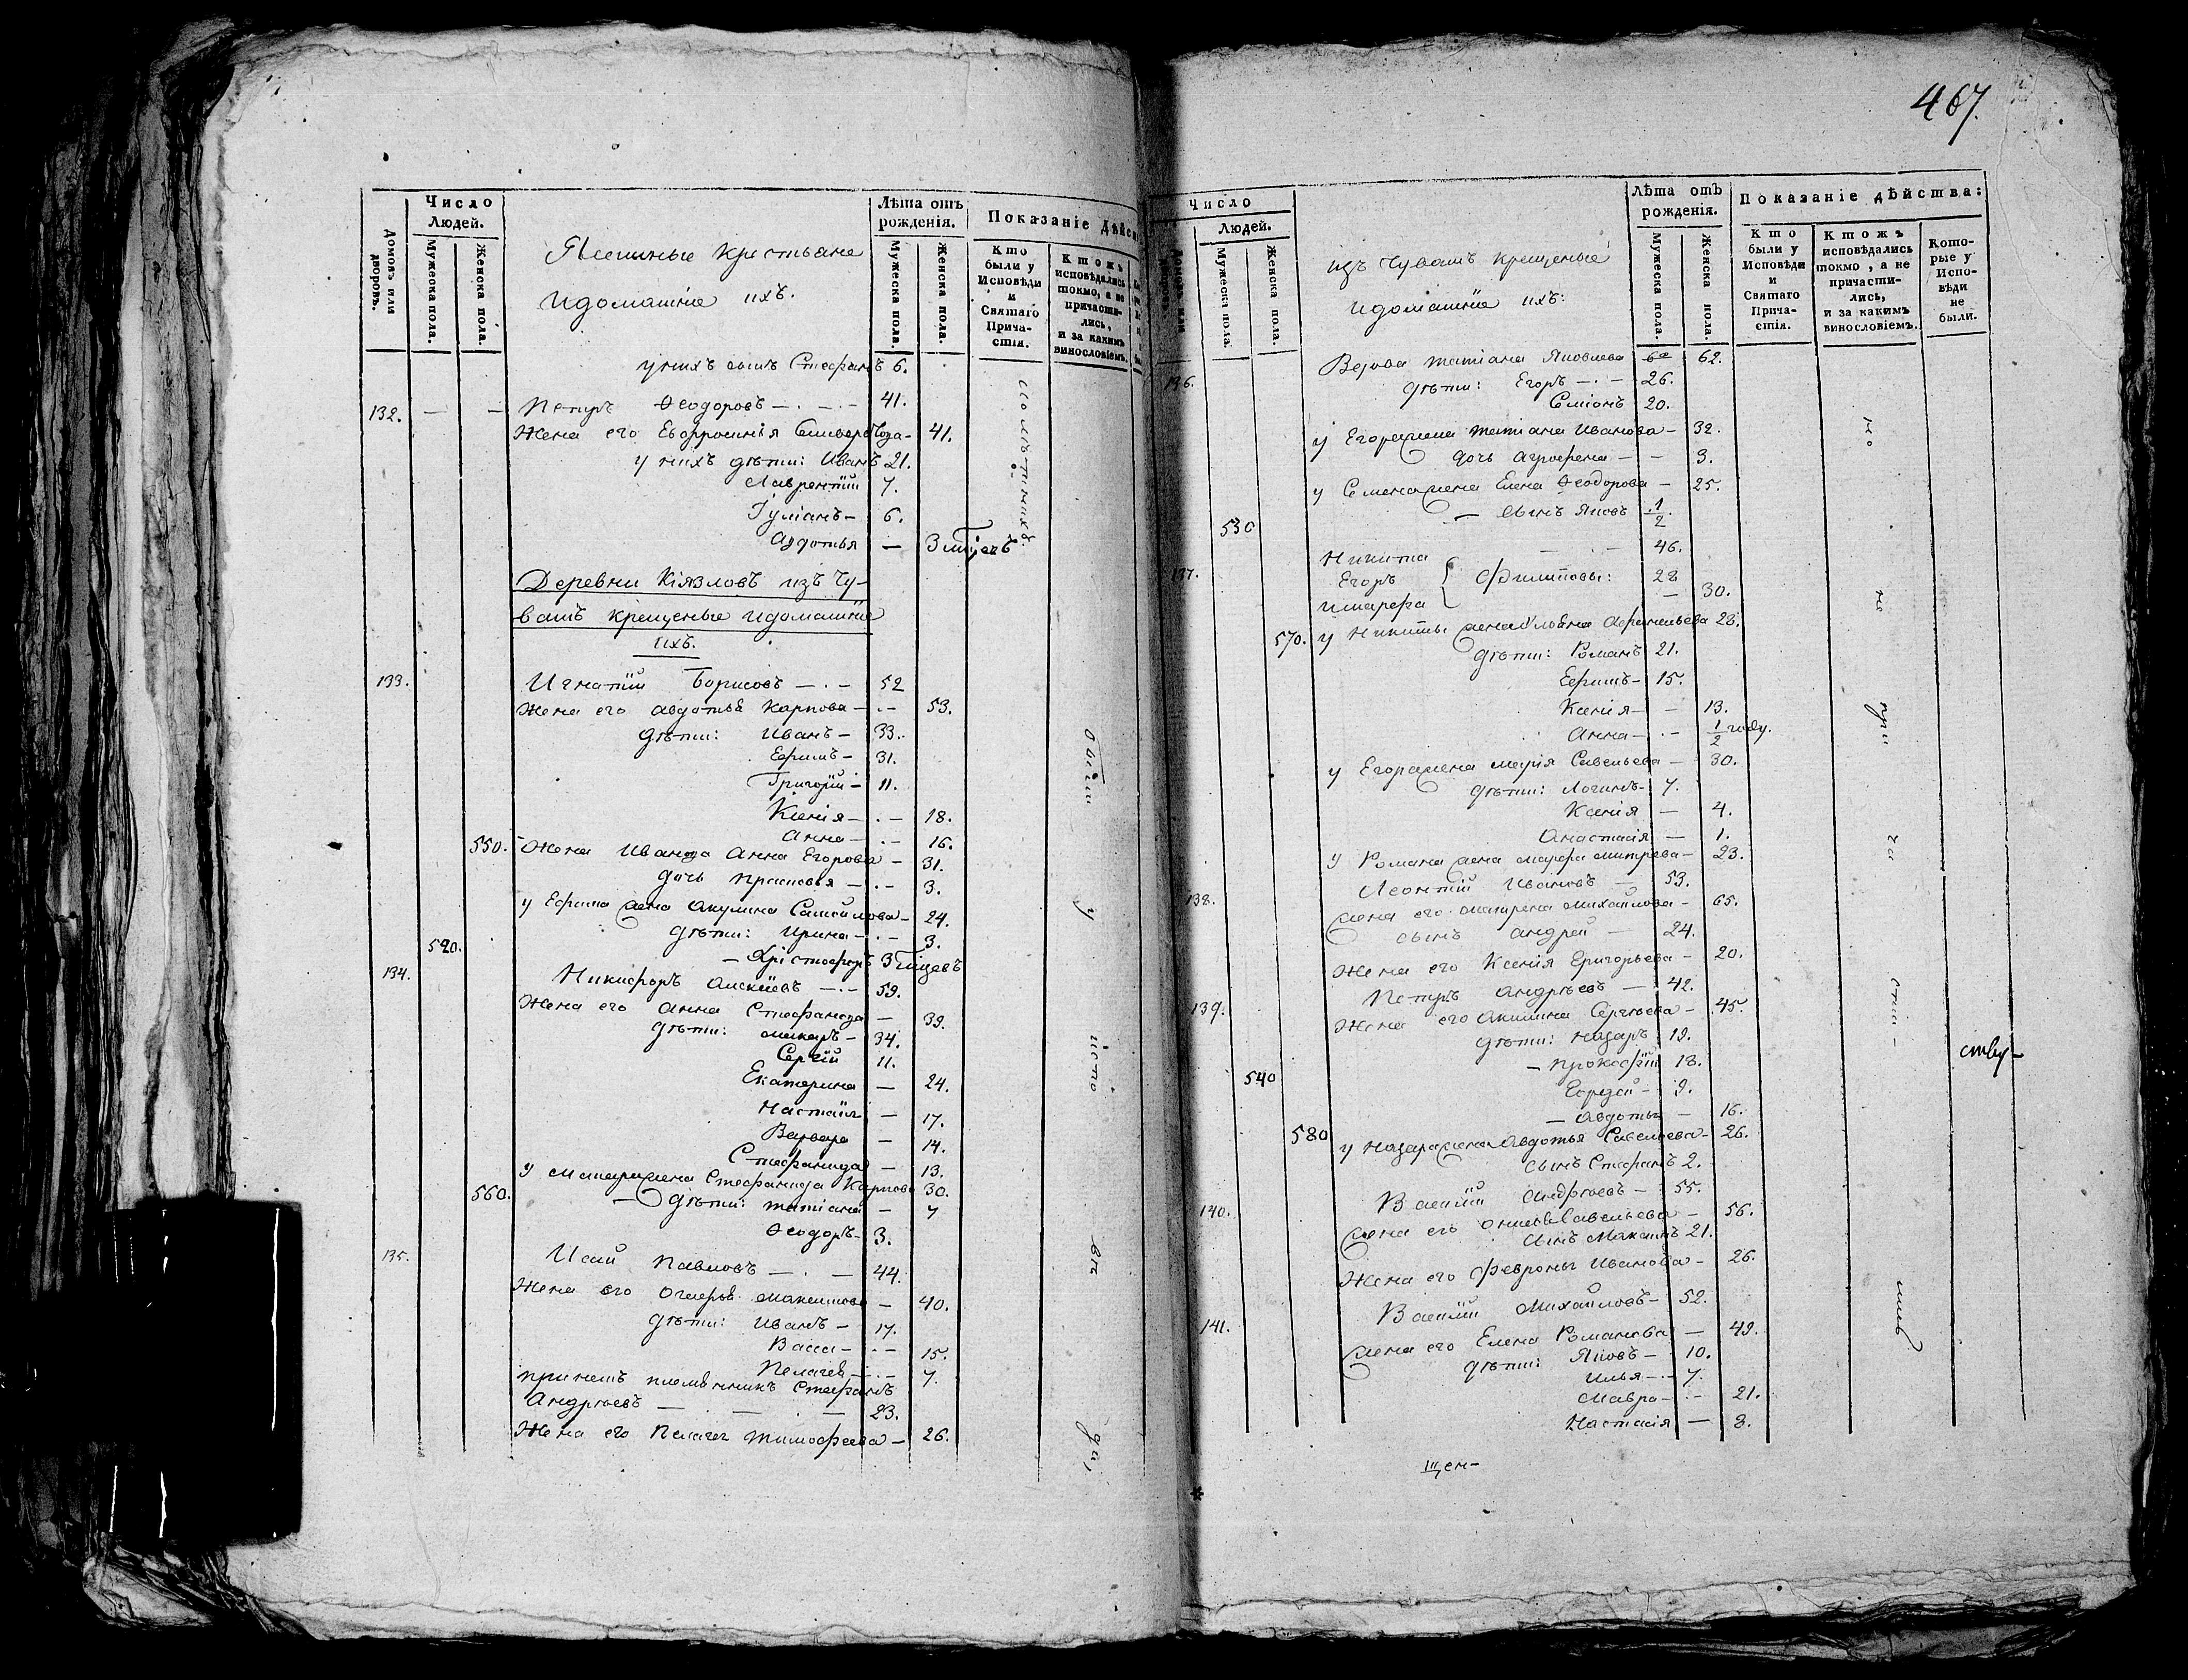 467.
Число Людей.
Домовъ или дворовъ.
Мужеска пола.
Женска пола.
Крестьяне
идомашніе ихъ.
Лѣта отъ рожденія.
Мужеска пола.
Женска пола.
Показаніе Дѣйст
Кто были у Исповѣди и Святаго Прича-стія.
Ктожъ исповѣдались токмо, а не причасти-лись, и за какимъ винословіемъ.
у нихъ сынъ Стефанъ 6.
132. — — Петръ Ѳеодоровъ — . — . — 41.
Жена его Евфросинія 41.
у нихъ дѣти: Иванъ 21.
Лаврентій 7.
Іуліанъ — 6.
Авдотья — 3 мцевъ
Деревни Кіязловъ изъ Чу-
вашъ крещеные идомашніе
ихъ.
133. Игнатій Борисовъ — . — 52
Жена его авдотья Карпова — . — 53.
дѣти: Иванъ — 33.
Ефимъ — 31.
Григорій — 11.
Ксенія — . — 18.
Анна — . — 16.
550. Жена Ивана Анна Егорова — 31.
дочь Прасковья — . — 3.
у Ефима жена Акулина Самойлова — 24.
дѣти: Ирина — . — 3.
520. — Христофоръ 3 мцевъ
134. Никифоръ Алексіевъ — . — 59.
Жена его Анна Стефанова — 39.
дѣти: Макаръ — 34.
Сергій 11.
Екатерина — 24.
Настасія — 17.
Варвара — 14.
Стефанида — 13.
у Макара жена Стефанида Карпова 30.
560. — дѣти: татіана — 7
Ѳеодоръ — 3.
135. Исай Павловъ — . — 44.
Жена его Максимова — 40.
дѣти: Иванъ — 17.
Васса — . — 15.
Пелагея — . — 7.
при немъ племянникъ Стефанъ
Андрѣевъ — . — . — 23.
Жена его Пелагея тимофеева — 26.
Малолѣтнихъ.
Обыи у испо вѣ да,
Число Людей.
Домовъ или дворовъ.
Мужеска пола.
Женска пола.
изъ Чувашъ крещеные
идомашніе ихъ:
Лѣта отъ рожденія.
Мужеска пола.
Женска пола.
Показаніе дѣйства:
Кто были у Исповѣди и Святаго Прича-стія.
Ктожъ исповѣдались токмо, а не причасти-лись, и за какимъ винословіемъ.
Кото-рые у Испо-вѣди не были.
136. Вдова татіана Яковлева 62.
дѣти: Егоръ — . — 26.
Семіонъ 20.
у Егора жена татіана Иванова — 32.
дочь агрофена — — 3.
у Семена жена Елена Ѳеодорова — 25.
530 — сынъ Яковъ 1/2.
137. Никита — . — 46.
Егоръ Филиповы: 28
имарфа — 30.
570. у Никиты жена 28.
дѣти: Романъ 21.
Ефимъ — 15.
Ксенія — — 13.
Анна — . — 1/2 году.
у Егора жена марія Савельева — 30.
дѣти: Логинъ — 7.
Ксенія — 4.
Анастасія — 1.
у Романа жена марфа митрева — 23.
138. Леонтій Ивановъ — 53.
жена его матрена михайлова — 65.
сынъ андрей — 24.
Жена его Ксенія Григорьева — 20.
139. Петръ андрѣевъ — 42.
Жена его Акилина Сергѣева — 45.
дѣти: Назаръ 19.
540 — Прокофій 18.
— 9.
— авдотья — 16.
580 у Назара жена Авдотья Савельева — 26.
сынъ Стефанъ 2.
140. Василій Андрѣевъ — 55.
жена его Савельева — 56.
сынъ Максимъ 21.
Жена его Февронья Иванова — 26.
141. Василій Михайловъ — 52.
жена его Елена Романова — 49.
дѣти: Яковъ — 10.
Илья — . — 7.
Мавра — . — 21.
Настасія — 8.
но не при ча сти — лись
ству —
щен-